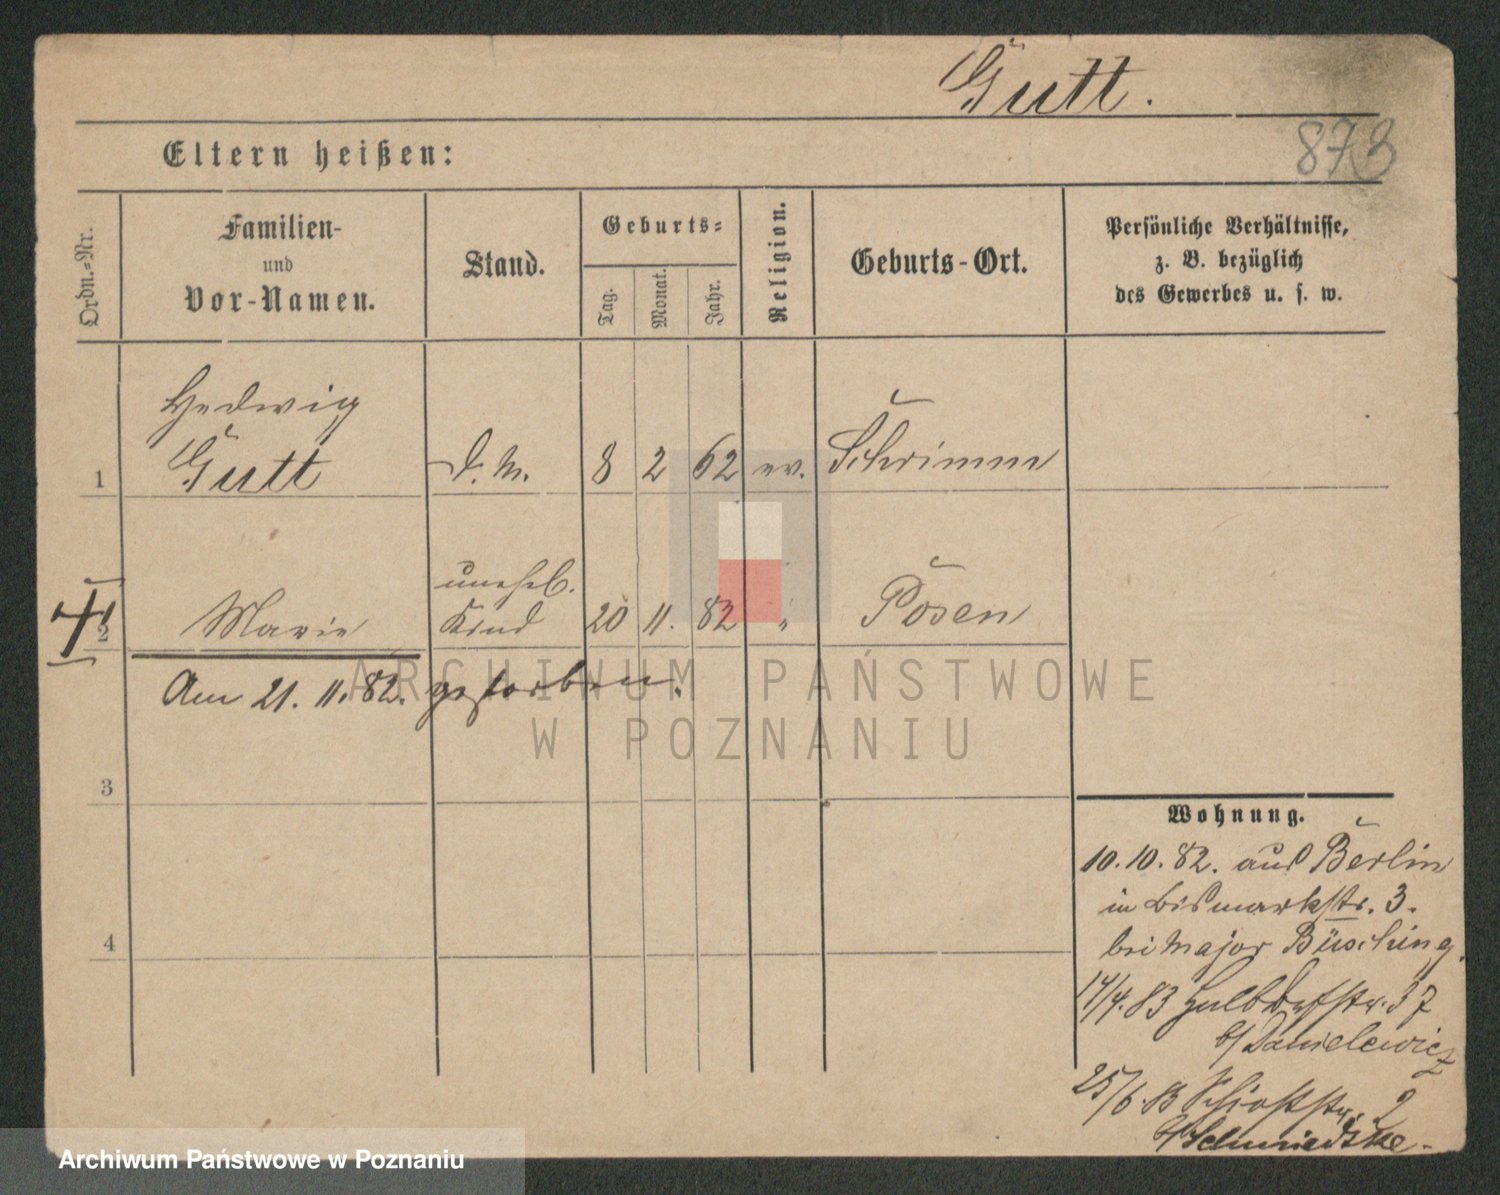 Gutt.
873
Eltern heißen:
Ordn.-Nr.
Familien-
und
Vor-Namen.
Stand.
Geburts-
Tag.
Monat.
Jahr.
Religion.
Geburts-Ort.
Persönliche Verhältnisse,
z. B. bezüglich
des Gewerbes u. s. w.
Hedwig
1 Gutt d. M. 8 2 62 ev. Schrimm
unehel.
2 Marie Kind 20 11. 82 " Posen
Am 21. 11. 82. gestorben.
3
4
Wohnung.
10. 10. 82. aus Berlin
in Bismarkstr. 3.
bei Major Büsching.
14/4. 83 Halbdorfstr. 37
b/ Danielewicz
25/6. 83 Schloßstr. 2
b/
ARCHIWUM PAŃSTWOWE
W POZNANIU
Archiwum Państwowe w Poznaniu